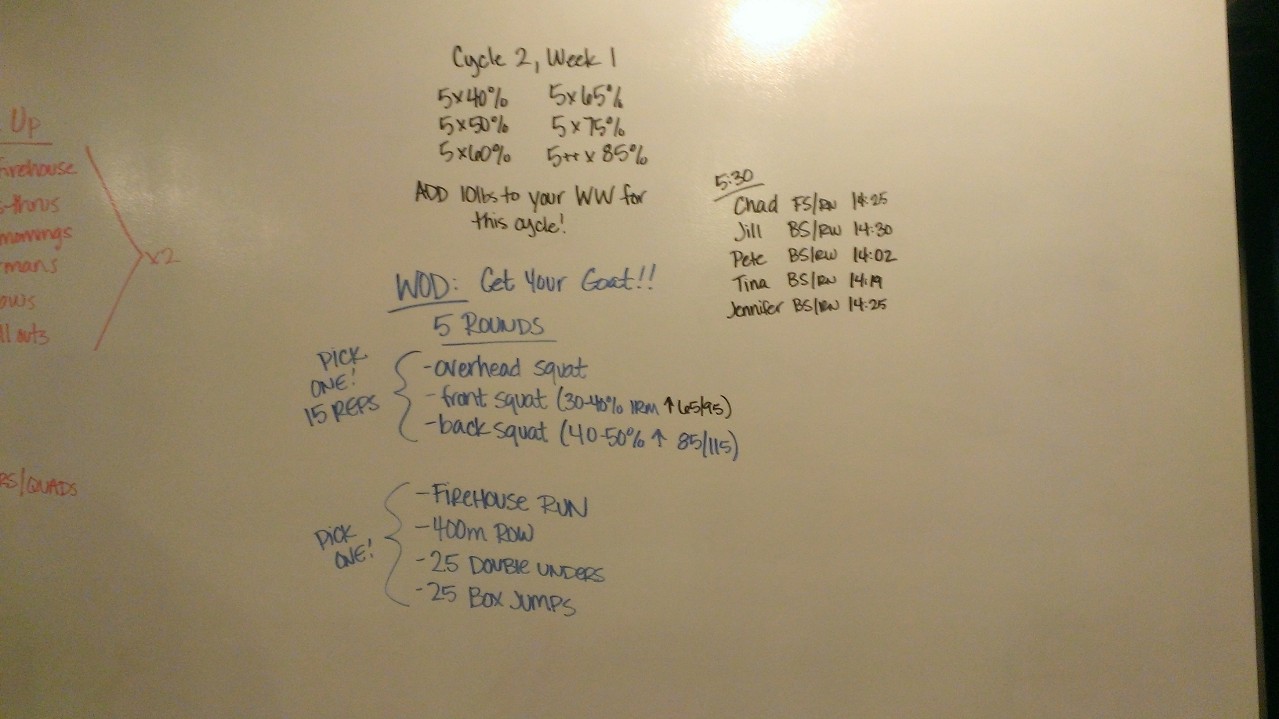 Up
Firehouse
mornings
x2
Cycle 2, Week 1
5x40% 5x65%
5x50% 5x75%
5x60% 5++ x 85%
ADD 10lbs to your WW for
this cycle!
5:30
Chad FS/RN 14:25
Jill BS/RW 14:30
Pete BS/RW 14:02
Tina BS/RN 14:19
Jennifer BS/RN 14:25
WOD: Get Your Goat!!
5 ROUNDS
PICK
ONE!
15 REPS
-overhead squat
-front squat (30-40% 1RM ↑ 65/95)
-back squat (40-50% ↑ 85/115)
/QUADS
PICK
ONE!
-FIREHOUSE RUN
-400m ROW
-25 DOUBLE UNDERS
-25 BOX JUMPS